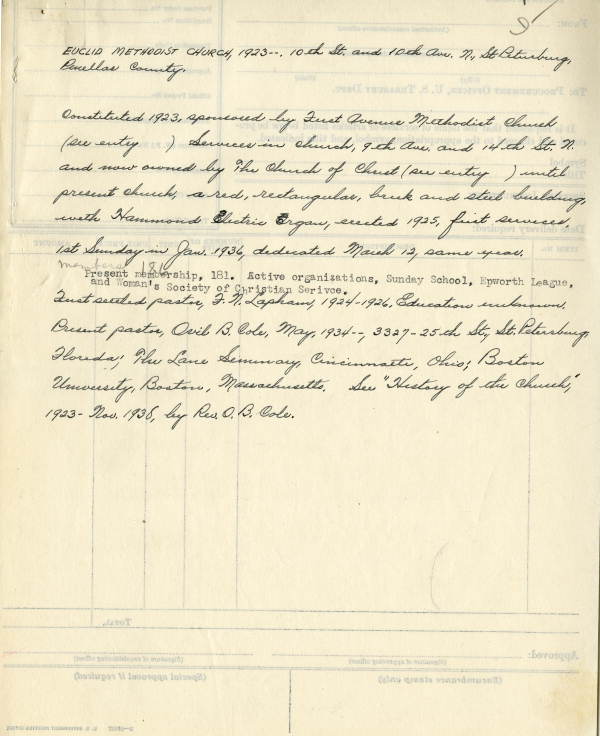 EUCLID METHODIST CHURCH, 1923--. 10th St. and 10th Ave. N., St. Petersburg,
Pinellas County.
Constituted 1923, sponsored by First Avenue Methodist Church
(see entry    ) Services in church, 9th Ave. and 14th St. N.
and now owned by The Church of Christ (see entry    ) until
present church, a red, rectangular, brick and steel building,
with Hammond Electric Organ, erected 1925, first services
1st Sunday in Jan. 1936, dedicated March 12, same year.
members 181
Present membership, 181. Active organizations, Sunday School, Epworth League,
and Woman's Society of Christian Serivce.
First settled pastor, F. N. Lapham, 1924-1926. Education unknown.
Present pastor, Ovil B. Cole, May, 1934--, 3327-25th St., St. Petersburg,
Florida; The Lane Seminary, Cincinnati, Ohio; Boston
University, Boston, Massachusetts. See "History of the Church,"
1923-Nov. 1938, by Rev. O. B. Cole.